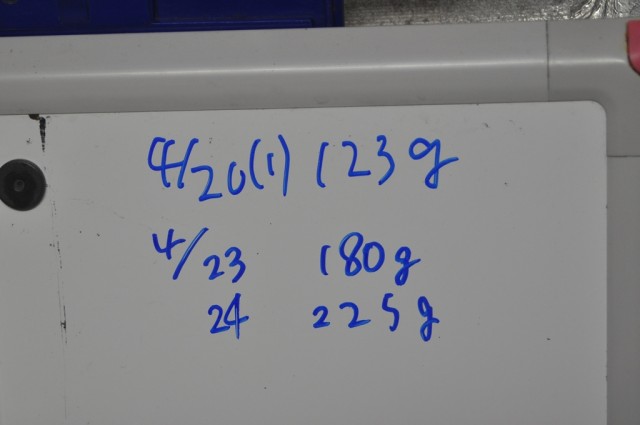 4/20(1) 123g
4/23 180g
24 225g